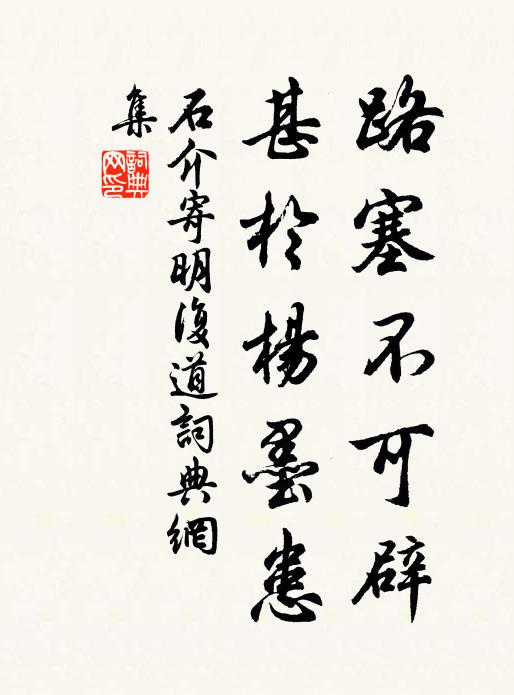 路塞不可辟
甚於楊墨患
石介寄明復道詞典網
集
詞典
网印